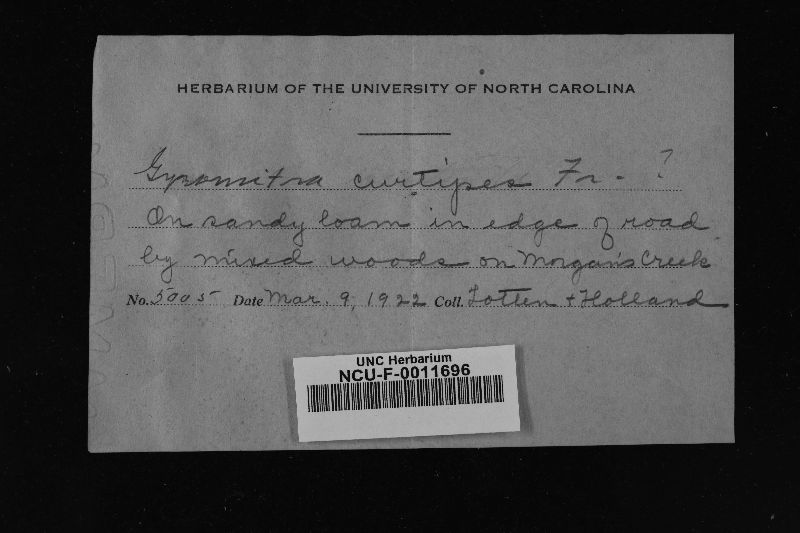 HERBARIUM OF THE UNIVERSITY OF NORTH CAROLINA
Gyromitra curtipes Fr. ?
On sandy loam in edge of road
by mixed woods on Morgan's Creek
No. 5005 Date Mar. 9, 1922 Coll. Totten + Holland
UNC Herbarium
NCU-F-0011696